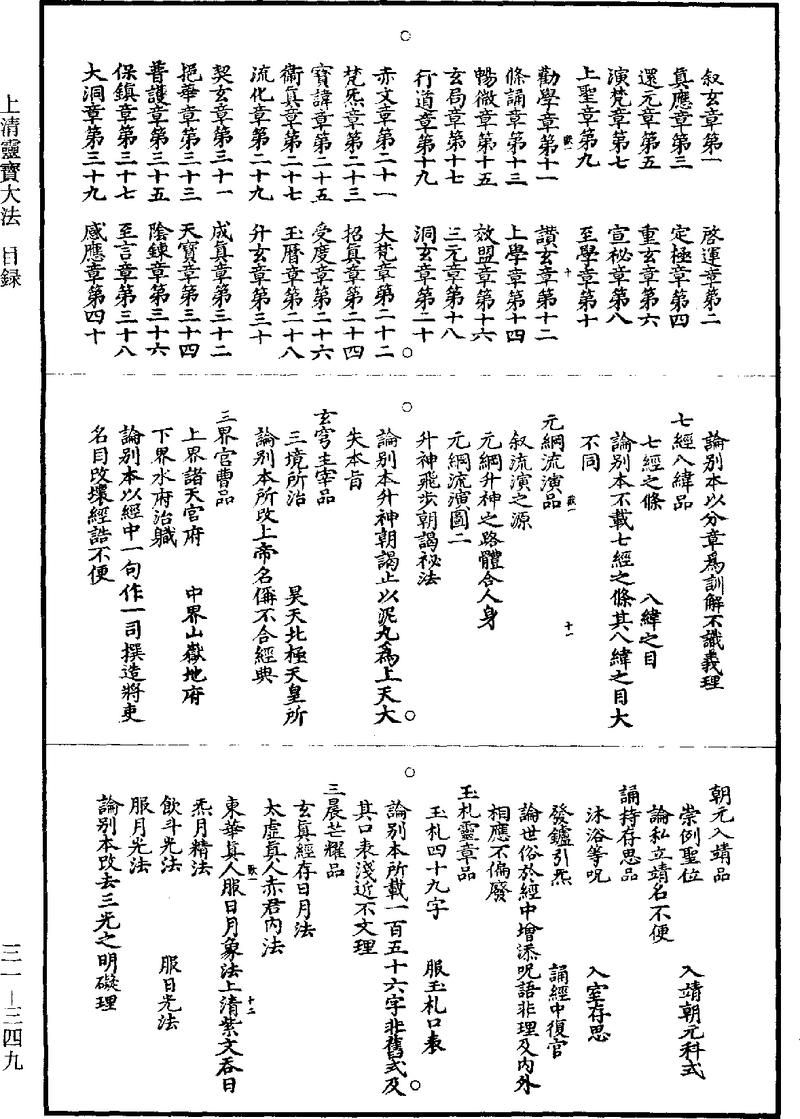 上清靈寶大法 目録
叙玄章第一 啓運章第二
真應章第三 定極章第四
還元章第五 重玄章第六
演梵章第七 宣祕章第八
上聖章第九 至學章第十
勸學章第十一 讚玄章第十二
條誦章第十三 上學章第十四
暢微章第十五 效盟章第十六
玄局章第十七 三元章第十八
行道章第十九 洞玄章第二十
赤文章第二十一 大梵章第二十二
梵炁章第二十三 招真章第二十四
寶諱章第二十五 受度章第二十六
衞真章第二十七 玉曆章第二十八
流化章第二十九 升玄章第三十
契玄章第三十一 成真章第三十二
挹華章第三十三 天寶章第三十四
普護章第三十五 陰鍊章第三十六
保鎮章第三十七 至言章第三十八
大洞章第三十九 感應章第四十
論別本以分章爲訓解不識義理
七經八緯品
七經之條 八緯之目
論別本不載七經之條其八緯之目大
不同
元綱流演品
叙流演之源
元綱升神之路體合人身
元綱流演圖二
升神飛步朝謁祕法
論別本升神朝謁止以泥丸爲上天大
失本旨
玄穹主宰品
三境所治 昊天北極天皇所
論別本所改上帝名偁不合經典
三界官曹品
上界諸天官府 中界山嶽地府
下界水府治職
論別本以經中一句作一司撰造將吏
名目改壞經誥不便
朝元入靖品
崇例聖位 入靖朝元科式
論私立靖名不便
誦持存思品
沐浴等呪 入室存思
發鑪引炁 誦經中復官
論世俗於經中增添呪語非理及内外
相應不偏廢
玉札靈章品
玉札四十九字 服玉札口訣
論別本所載一百五十六字非舊式及
其口訣淺近不文理
三晨芒耀品
玄真經存日月法
太虛真人赤君内法
東華真人服日月象法上清紫文吞日
炁月精法
飲斗光法 服日光法
服月光法
論別本改去三光之明礙理
三一—三四九